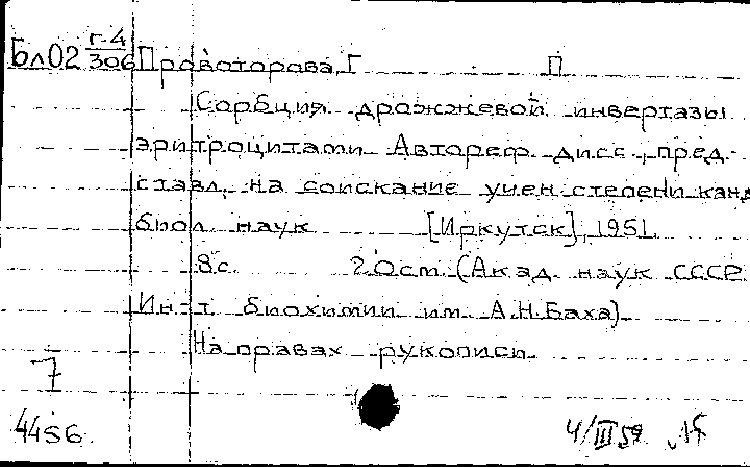 Бл02 г-4/306 Правоторова, Г. П
Сорбция дрожжевой инвертазы
эритроцитами Автореф. дисс., пред-
ставл. на соискание учен. степени канд
биол. наук [Иркутск], 1951.
8 с. 20 см (Акад. наук СССР
Ин-т биохимии им. А.Н.Баха)
На правах рукописи
7
4456. 4/III 52